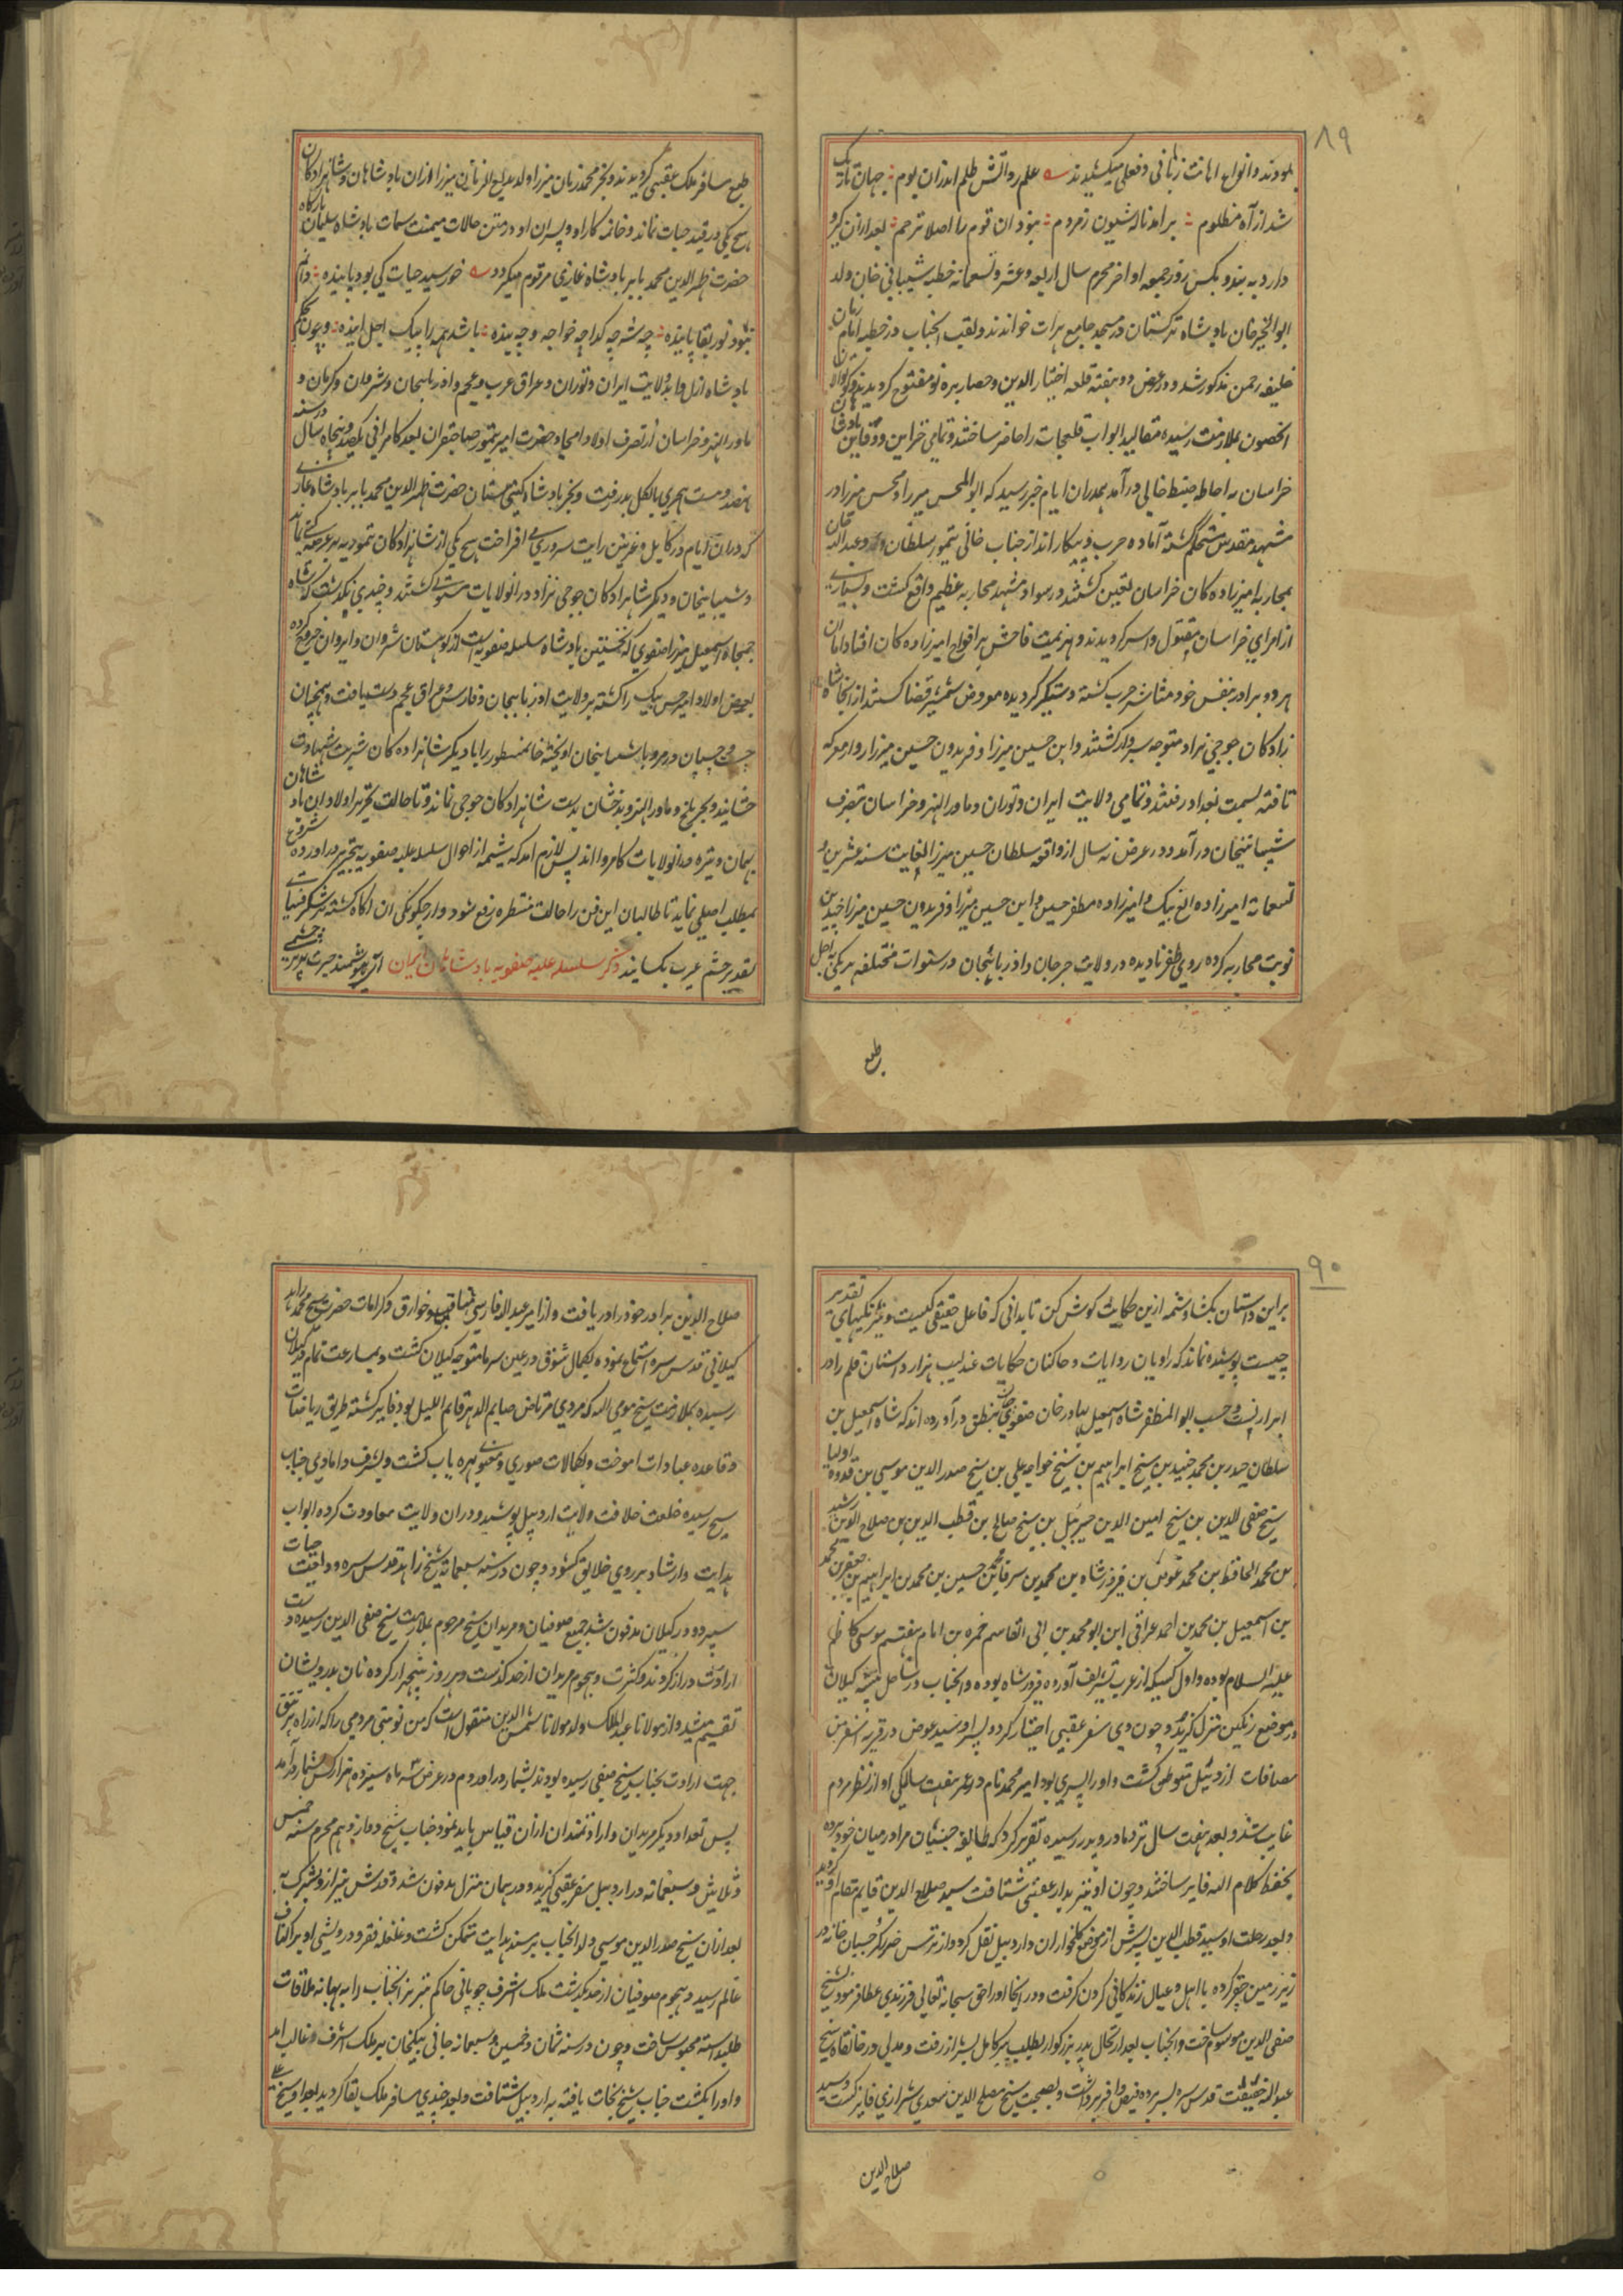 ۸۹
نمودند و انواع اهانت زبانی و فعلی میکشیدند علم رو آتش ظلم اندران بوم جهان تاریک
شد از آه مظلوم برآمد ناله شیون ز مردم نبود آن قوم را اصلا ترحم بعد از آن
دار و به بند و بکس روز جمعه اواخر محرم سال اربعه و عشر و تسعمائه خطبه شیبانی خان ولد
ابوالخیر خان پادشاه ترکستان در مسجد جامع هرات خواندند و لقب انجناب در خطبه امام زمان
خلیفه رحمن مذکور شد و در عرض دو هفته قلعه اختیار الدین و حصار نیره تو مفتوح کردیدند و کوتوالان
الحصون بملازمت رسیده مقالید ابواب قلعجات را حاضر ساختند و تمامی خزاین و دفاین
خراسان به احاطه ضبط خانی در آمد بمدران ایام خبر رسید که ابوالمحسن میرزا و محسن میرزا در
مشهد مقدس مستحکم گشته آماده حرب و پیکار اند از جناب خانی تیمور سلطان و عبدالله خان
بمحاربه امیرزاده کان خراسان تعیین گشتند و در سواد مشهد محاربه عظیم واقع گشت و بسیاری
از امرای خراسان مقتول و اسیر کردیدند و هزیمت فاحش بر افواج امیرزاده کان افتاد اما ان
هر دو برادر بنفس خود مشاشر حرب کشته دستگیر کردیده معروض شمشیر قضا کشتند از انجا شاه
زادکان جوجی نژاد متوجه سبزوار کشتند و ابن حسین میرزا و فریدون حسین میرزا رو از معرکه
تافته بسمت بغداد رفتند و تمامی ولایت ایران و توران و ماورالنهر و خراسان بتصرف
شیبانیخان در آمد و در عرض نه سال از واقعه سلطان حسین میرزا لغایت سنه عشرین و
تسعمائه امیرزاده الغ بیک و امیرزاده مظفر حسین و ابن حسین میرزا و فریدون حسین میرزا چندین
نوبت محاربه کرده روی ظفر نادیده در ولایت جرجان و اذربائیجان در سنوات مختلفه هر یکی به اجل
طبع
طبع مسافر ملک عقبی کردیدند و بجز محمد زمان میرزا ولد بدیع الزمان میرزا ازان پادشاهان و شاهزادکان
هیچ یکی در قید حیات نماند و خاتمه کار او و پسران او در متن حالات میمنت سمات پادشاه سلیمان بارگاه
حضرت ظهیرالدین محمد بابر پادشاه غازی مرقوم میکردد خورشید حیات کی بود پاینده دایم
نبود نور بقا پاینده چه شه چه گدا چه خواجه و چه بنده باشد همه را پیک اجل آینده و چون بحکم
پادشاه ازل و ابد ولایت ایران و توران و عراق عرب و عجم و اذربائیجان و شروان و کرمان و
ماورالنهر و خراسان از تصرف اولاد امجاد حضرت امیر تیمور صاحبقران بعد کامرانی یکصد و پنجاه سال در سنه
نهصد و بیست هجری بالکل بدر رفت و بجز پادشاه گیتی ستان حضرت ظهیرالدین محمد بابر پادشاه غازی
که دران ایام در کابل و غزنین رایت سروری می افراخت هیچ یکی از شاهزادکان تیموریه بر عرصه گیتی نماند
و شیبانیخان و دیگر شاهزادکان جوجی نژاد در انولایات مستولی کشتند و چندی نگذشت که شاه
جمجاه اسمعیل میرزا صفوی که نخستین پادشاه سلسله صفویه است از کوهستان شروان و ایروان خروج کرده
بعضی اولاد امیر حسن بیک را کشته بر ولایت اذربائیجان و فارس و عراق عجم دست یافت و همچنان
چست و چسپان در مرو با شیبانیخان اویخته خان مسطور را با دیگر شاهزاده کان شربت شهادت
چشانید و بجز بلخ و ماورالنهر و بدخشان بدست شاهزادکان جوجی نماند و تا حالت تحریر اولاد ان پادشاهان
بهمان وتیره در انولایات کامروا اند پس لازم آمد که شمه از احوال سلسله علیه صفویه بتحریر در اورده شروع
بمطلب اصلی نماید تا طالبان این فن را حالت منتظره رفع شود و از چگونگی ان آگاه کشته بر شگرفیهای
تقدیر چشم عبرت بکشایند ذکر سلسله علیه صفویه پادشاهان ایران ای هوشمند حیرت پذیر چشمی
۹۰
بر این داستان بکشا و شمه ازین حکایت گوش کن تا بدانی که فاعل حقیقی کیست و نیرنگیهای تقدیر
چیست پوشیده نماند که راویان روایات و حاکیان حکایات عندلیب هزار داستان قلم را در
ابراز نسب و حسب ابوالمظفر شاه اسمعیل بهادر خان صفوی چنین بنطق در آورده اند که شاه اسمعیل بن
سلطان حیدر بن محمد جنید بن شیخ ابراهیم بن شیخ خواجه علی بن شیخ صدر الدین موسی بن قدوه اولیا
شیخ صفی الدین بن شیخ امین الدین جبرئیل بن شیخ صالح بن قطب الدین بن صلاح الدین رشید
بن محمد الحافظ بن محمد عوض بن فیروز شاه بن محمد بن سرفا بن محمد بن حسین بن محمد بن ابراهیم بن جعفر بن محمد
بن اسمعیل بن محمد بن احمد عراقی ابن ابو محمد بن ابی القاسم حمزه بن امام هفتم موسی کاظم
علیه السلام بوده و اول کسیکه از عرب تشریف آورده فیروز شاه بوده و انجناب در ساحل بیشه کیلان
در موضع رنگین منزل گزید و چون وی سفر عقبی اختیار کرد و پسر او سید عوض در قریه اسفرنجن
مضافات اردبیل متوطن کشت و او را پسری بود امیر محمد نام در عمر هفت سالگی او از نظر مردم
غایب شد و بعد هفت سال نزد مادر و پدر رسیده تقریر کرد که طایفه جنیان مرا در میان خود برده
بحفظ کلام الله فایز ساختند و چون او نیز بدار عقبی شتافت سید صلاح الدین قایم مقام او کردید
و بعد رحلت او سید قطب الدین پسرش از موضع کلخواران و اردبیل نقل کرد و از ترس ضرر گرجیان خانه در
زیر زمین حفر کرده با اهل و عیال زندگانی کردن گرفت و در انجا او را حق سبحانه تعالی فرزندی عطا فرمود شیخ
صفی الدین موسوم ساخت و انجناب بعد ارتحال پدر بزرگوار بطلب پیر کامل بشیراز رفت و مدتی در خانقاه شیخ
عبدالله خفیف قدس سره بسر برده فیض وافر برداشت و بصحبت شیخ مصلح الدین سعدی شیرازی فایز گشت و سید
صلاح الدین
صلاح الدین برادر خود را دریافت و از امیر عبدالله فارسی مناقب و خوارق و کرامات حضرت شیخ محمد زاهد
کیلانی قدس سره استماع نموده بکمال شوق در عین سرما متوجه کیلان کشت و بسارعت تمام در کیلان
رسیده بملازمت شیخ مومی الیه که مردی مرتاض صایم الدهر قایم اللیل بود فایز کشته طریق ریاضات
و قاعده عبادات اموخت و بکمالات صوری و معنوی بهره یاب کشت و بشرف دامادی جناب
شیخ رسیده خلعت خلافت ولایت اردبیل پوشید و دران ولایت معاودت کرده ابواب
هدایت و ارشاد بر روی خلایق کشود و چون در سنه سبعمائه شیخ زاهد قدس سره ودیعت حیات
سپرده در کیلان مدفون شد جمیع صوفیان و مریدان شیخ مرحوم بملازمت شیخ صفی الدین رسیده دست
ارادت دراز کردند و کثرت و هجوم مریدان از حد گذشت و هر روز پنجهزار کرده نان بدرویشان
تقسیم میشد و از مولانا عبدالملک ولد مولانا شمس الدین منقول است که من نوبتی مردمی را که از راه
جهت ارادت بجناب شیخ صفی رسیده بودند بشمار در آوردم در عرض سه ماه سیزده هزار کس بشمار در آمد
پس تعداد دیگر مریدان و ارادتمندان ازان قیاس باید نمود جناب شیخ دوازدهم محرم سنه خمس
و ثلاثین و سبعمائه در اردبیل سفر عقبی گزید و در همان منزل مدفون شد و قدس
بعد ازان شیخ صدر الدین موسی ولد انجناب بر مسند هدایت متمکن کشت و غلغله فقر و درویشی او بر اکناف
عالم رسید و هجوم صوفیان از حد بگذشت ملک اشرف چوپانی حاکم تبریز انجناب را به بهانه ملاقات
طلب داشته محبوس ساخت و چون در سنه ثمان و خمسین و سبعمائه جانی بیگخان بر ملک اشرف غالب آمد
و او را بکشت جناب شیخ نجات یافته به اردبیل شتافت و بعد چندی مسافر ملک بقا کردید بعد او شیخ علی